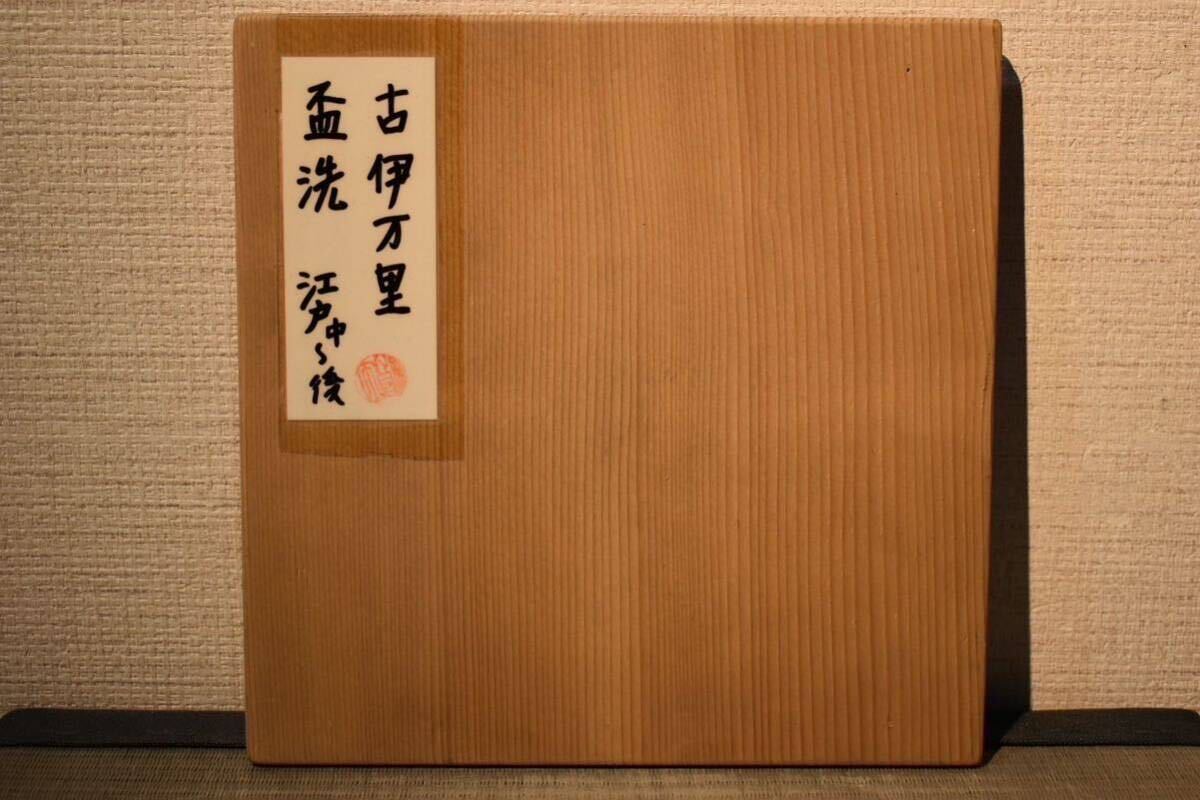 古伊万里
盃洗 江戸中〜後